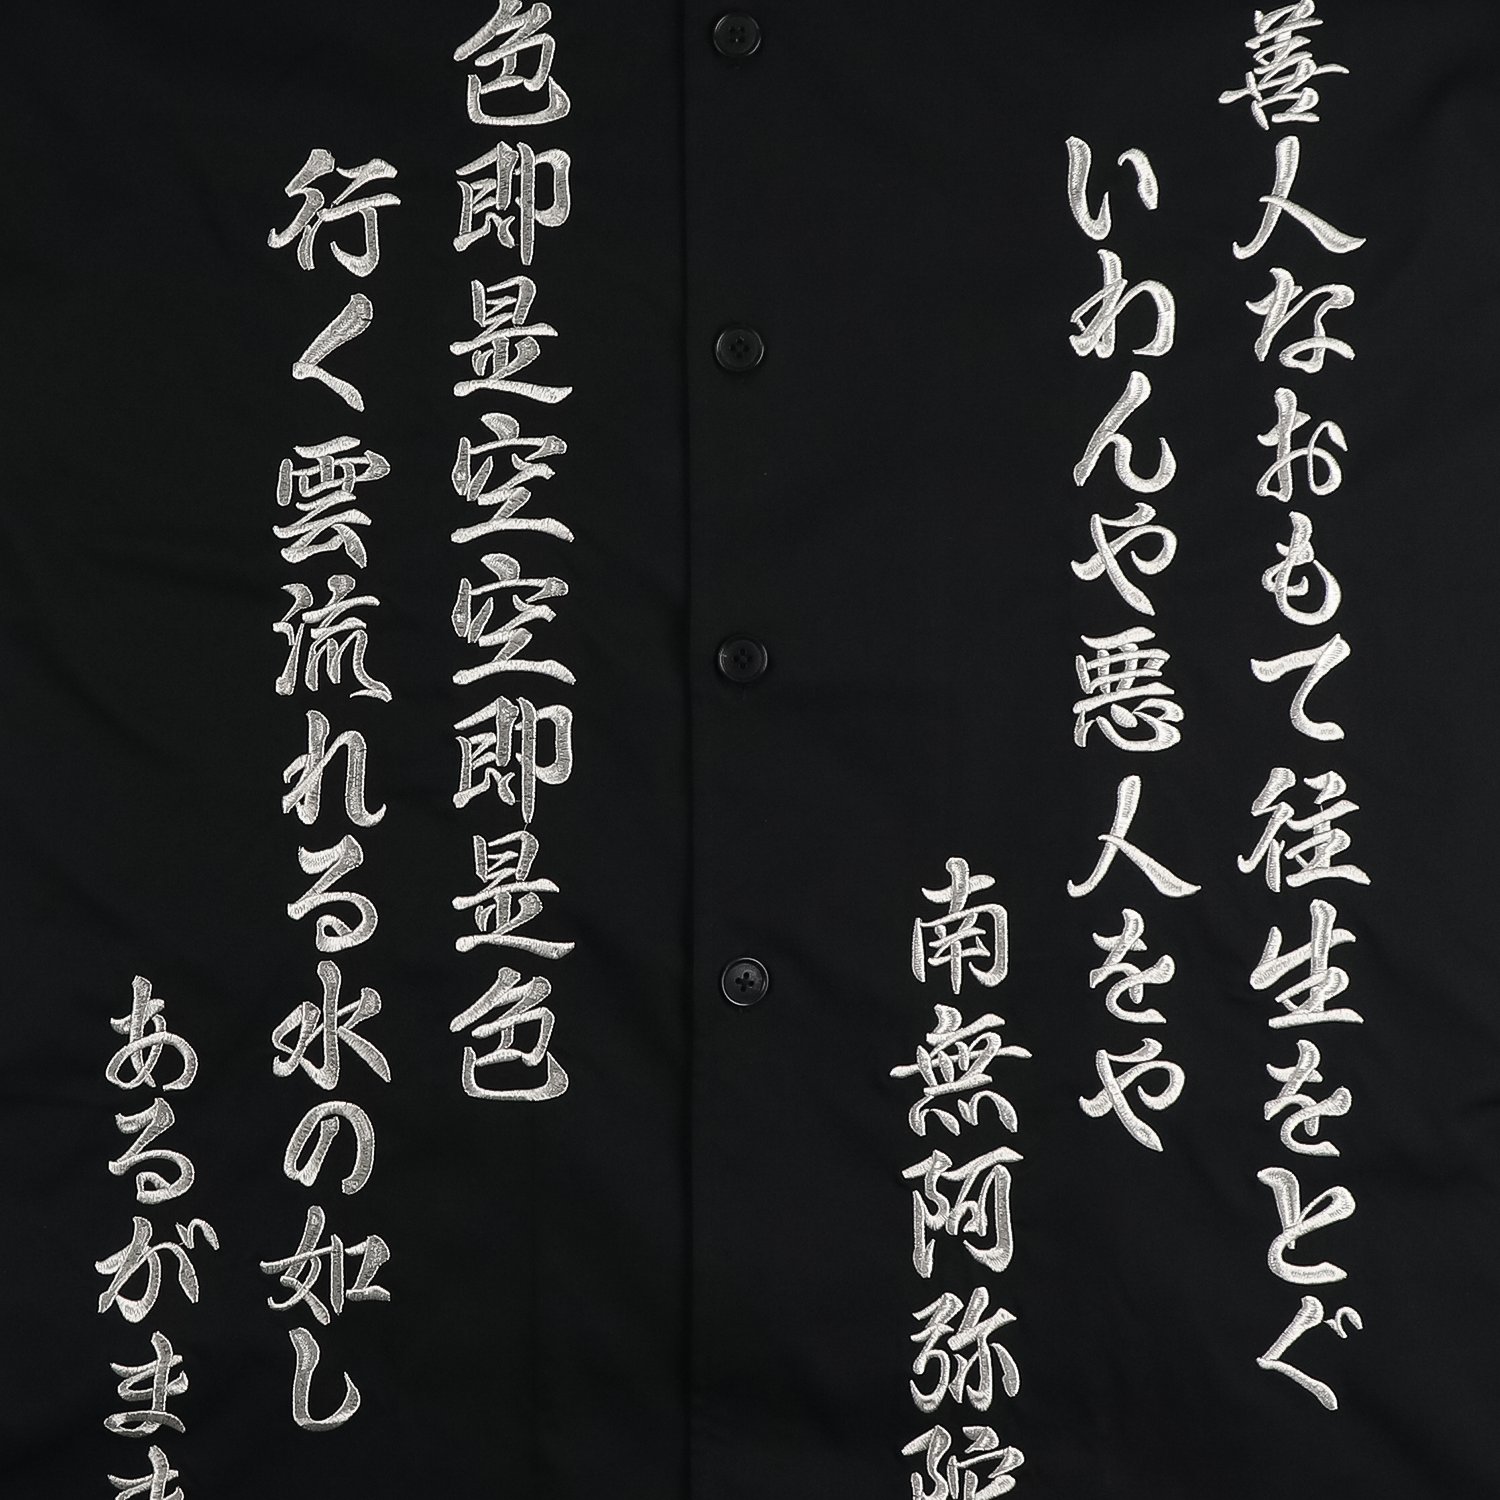 善人なおもて往生をとぐ
いわんや悪人をや
南無阿弥陀
色即是空空即是色
行く雲流れる水の如し
あるがまま